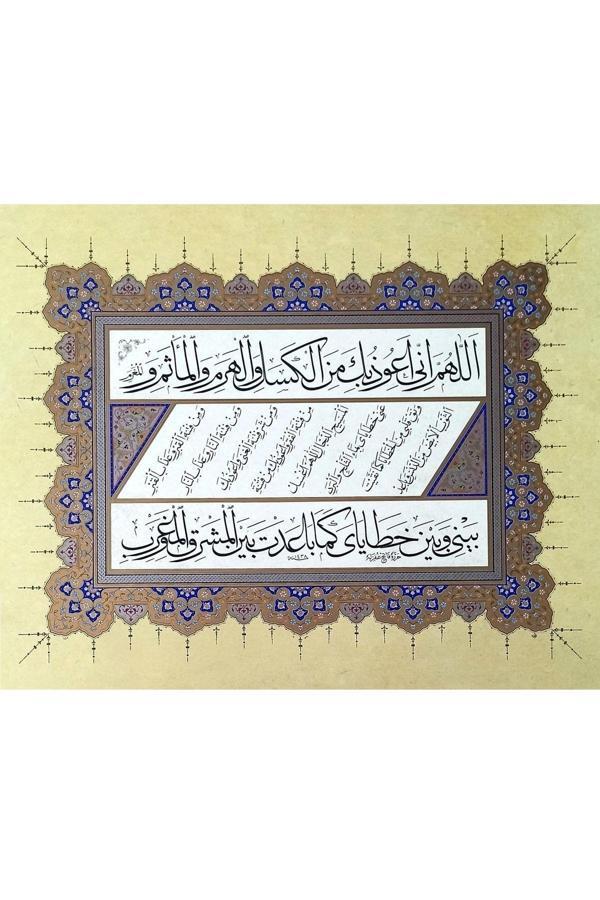 اَللّٰهُمَّ اِنّى اَعُوذُ بِكَ مِنَ الْكَسَلِ وَالْهَرَمِ وَالْمَأْثَمِ وَالْمَغْرَمِ
وَمِنْ فِتْنَةِ الْقَبْرِ وَعَذَابِ الْقَبْرِ
وَمِنْ فِتْنَةِ النَّارِ وَعَذَابِ النَّارِ
وَمِنْ شَرِّ فِتْنَةِ الْغِنٰى وَاَعُوذُ بِكَ
مِنْ فِتْنَةِ الْفَقْرِ وَاَعُوذُ بِكَ مِنْ فِتْنَةِ
الْمَسِيحِ الدَّجَّالِ اَللّٰهُمَّ اغْسِلْ
عَنّى خَطَايَاىَ بِمَاءِ الثَّلْجِ وَالْبَرَدِ
وَنَقِّ قَلْبى مِنَ الْخَطَايَا كَمَا نَقَّيْتَ
الثَّوْبَ الْاَبْيَضَ مِنَ الدَّنَسِ وَبَاعِدْ
بَيْنى وَبَيْنَ خَطَايَاىَ كَمَا بَاعَدْتَ بَيْنَ الْمَشْرِقِ وَالْمَغْرِبِ
١٤٣٨